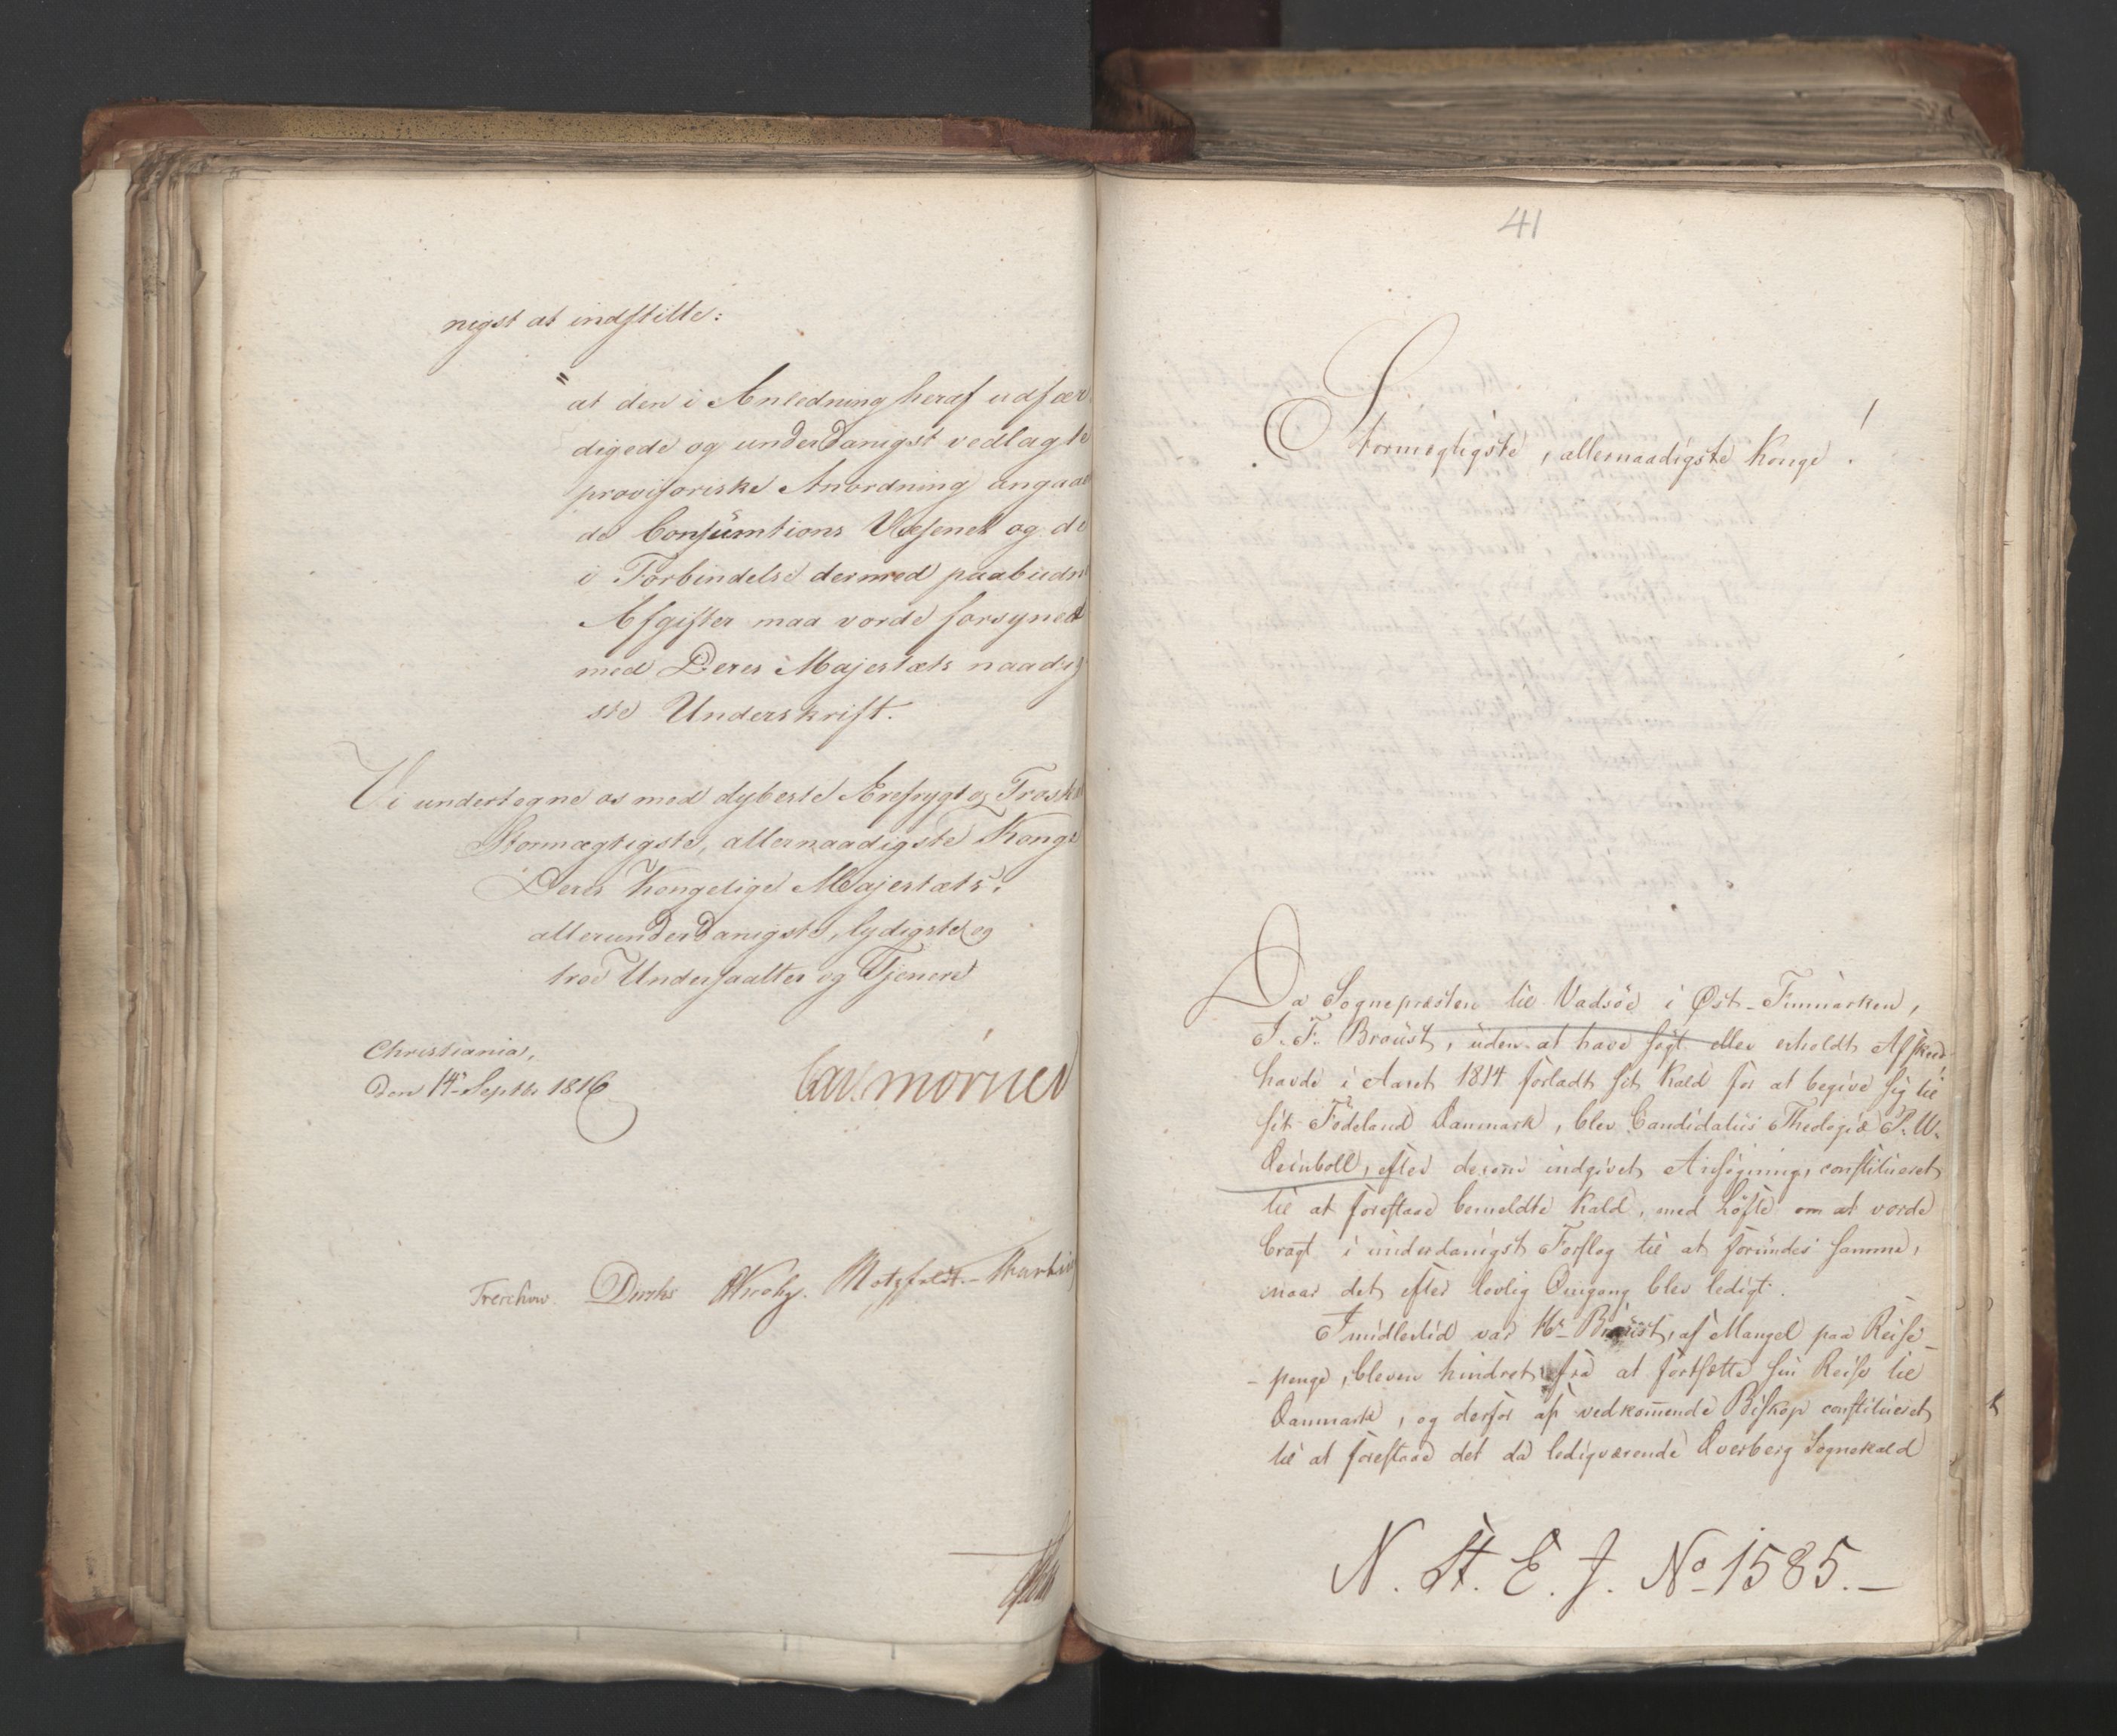 nigst at indstille:
"at den i Anledning heraf udfær
digede og underdanigst vedlagte
provisoriske Anordning angaaen
de Consumtions Væsenet og de
i Forbindelse dermed paabudne
Afgifter maa vorde forsynet
med Deres Majestæts naadig
ste Underskrift.
Vi undertegne os med dybeste Ærefrygt og Troskab
Stormægtigste, allernaadigste Konge
Deres Kongelige Majestæts
allerunderdanigste, lydigste og
troe Undersaatter og Tjenere
Christiania,
den 14de Septbr 1816
Carl Mörner
Treschow. Diriks Krohg. Motzfeldt.
41
Stormægtigste, allernaadigste Konge!
Da Sognepræsten til Vadsöe i Øst-Finmarken,
J. F. Broust, uden at have sögt eller erholdt Afskeed
havde i Aaret 1814 forladt sit Kald for at begive sig til
sit Födeland Danmark, blev Candidatus Theologiæ P. W.
Deinboll, efter derom indgivet Ansögning, constitueret
til at forestaae bemeldte Kald, med Löfte om at vorde
bragt i underdanigst Forslag til at forundes samme,
naar det efter lovlig Omgang blev ledigt.
Imidlertid var Hr Broust, af Mangel paa Reise-
-penge, bleven hindret fra at fortsætte sin Reise til
Danmark, og derfor af vedkommende Biskop constitueret
til at forestaae det da ledigværende Overberg Sognekald
N. St. E. J. No 1585.-